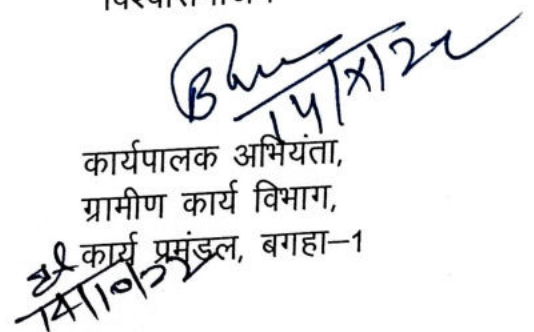 14/X/22
कार्यपालक अभियंता,
ग्रामीण कार्य विभाग,
कार्य प्रमंडल, बगहा–1
14/10/22